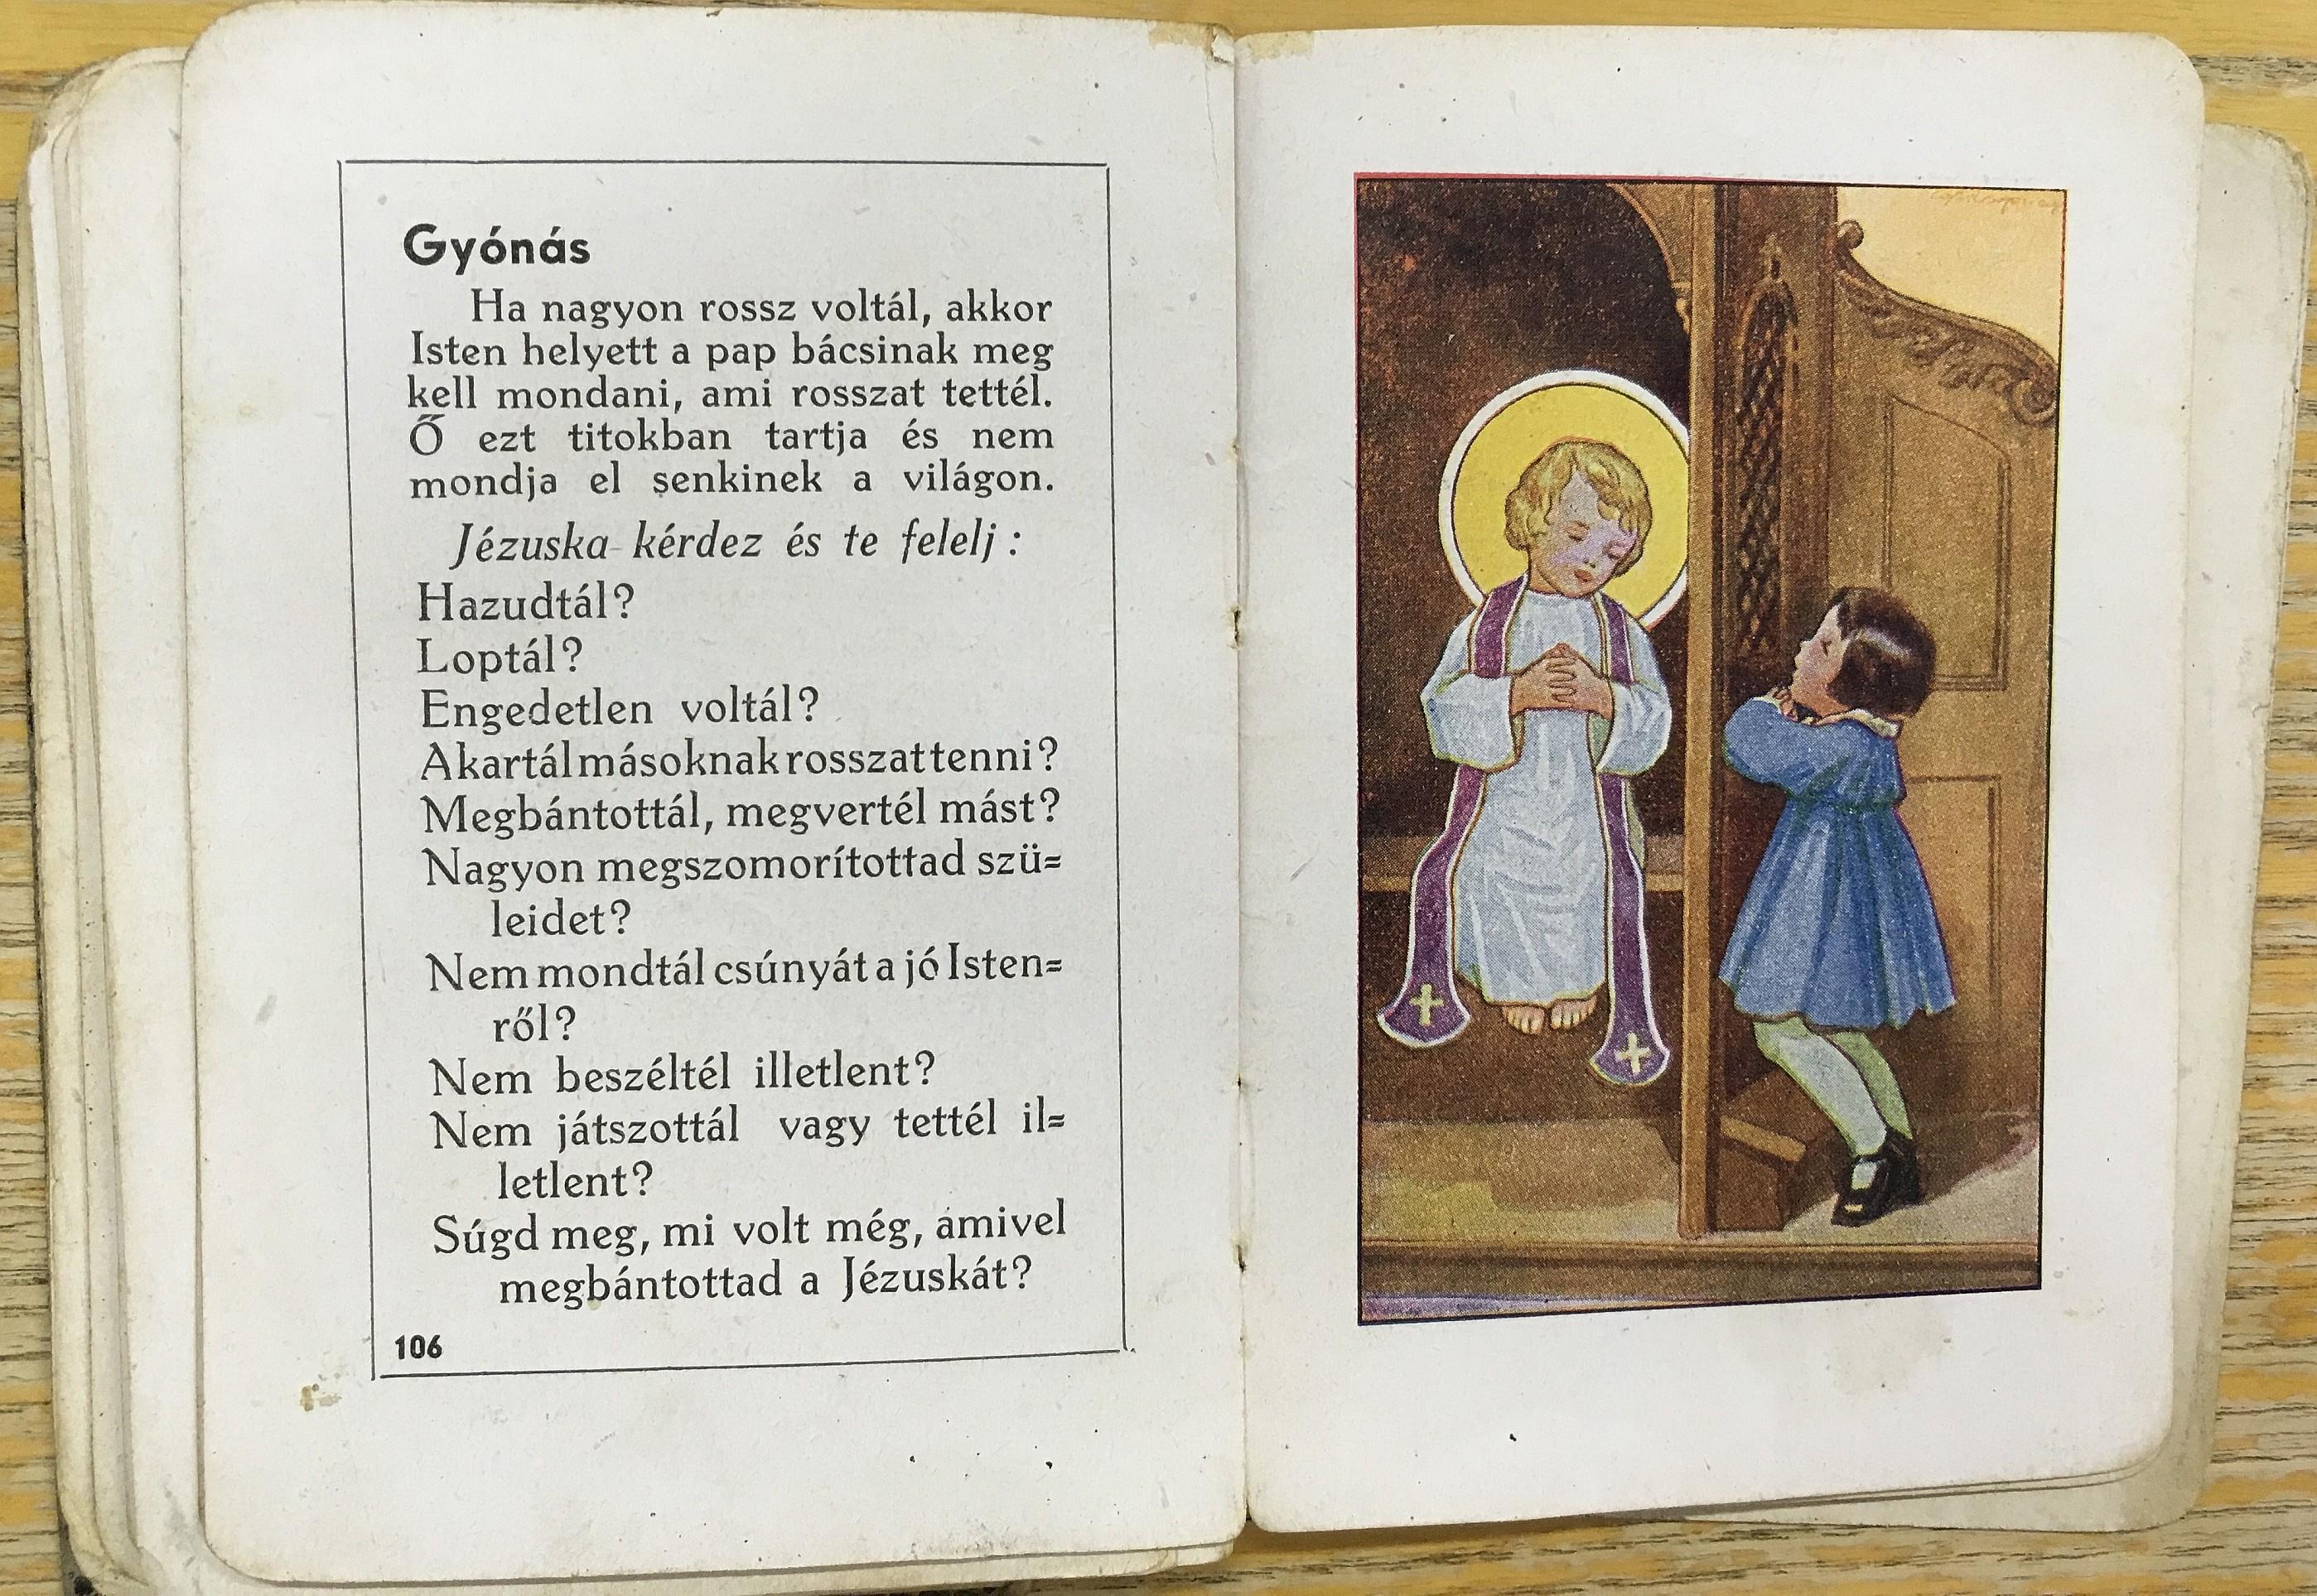 Gyónás
Ha nagyon rossz voltál, akkor
Isten helyett a pap bácsinak meg
kell mondani, ami rosszat tettél.
Ő ezt titokban tartja és nem
mondja el senkinek a világon.
Jézuska kérdez és te felelj :
Hazudtál?
Loptál?
Engedetlen voltál?
Akartál másoknak rosszat tenni?
Megbántottál, megvertél mást?
Nagyon megszomorítottad szü=
leidet?
Nem mondtál csúnyát a jó Isten=
ről?
Nem beszéltél illetlent?
Nem játszottál vagy tettél il=
letlent?
Súgd meg, mi volt még, amivel
megbántottad a Jézuskát?
106